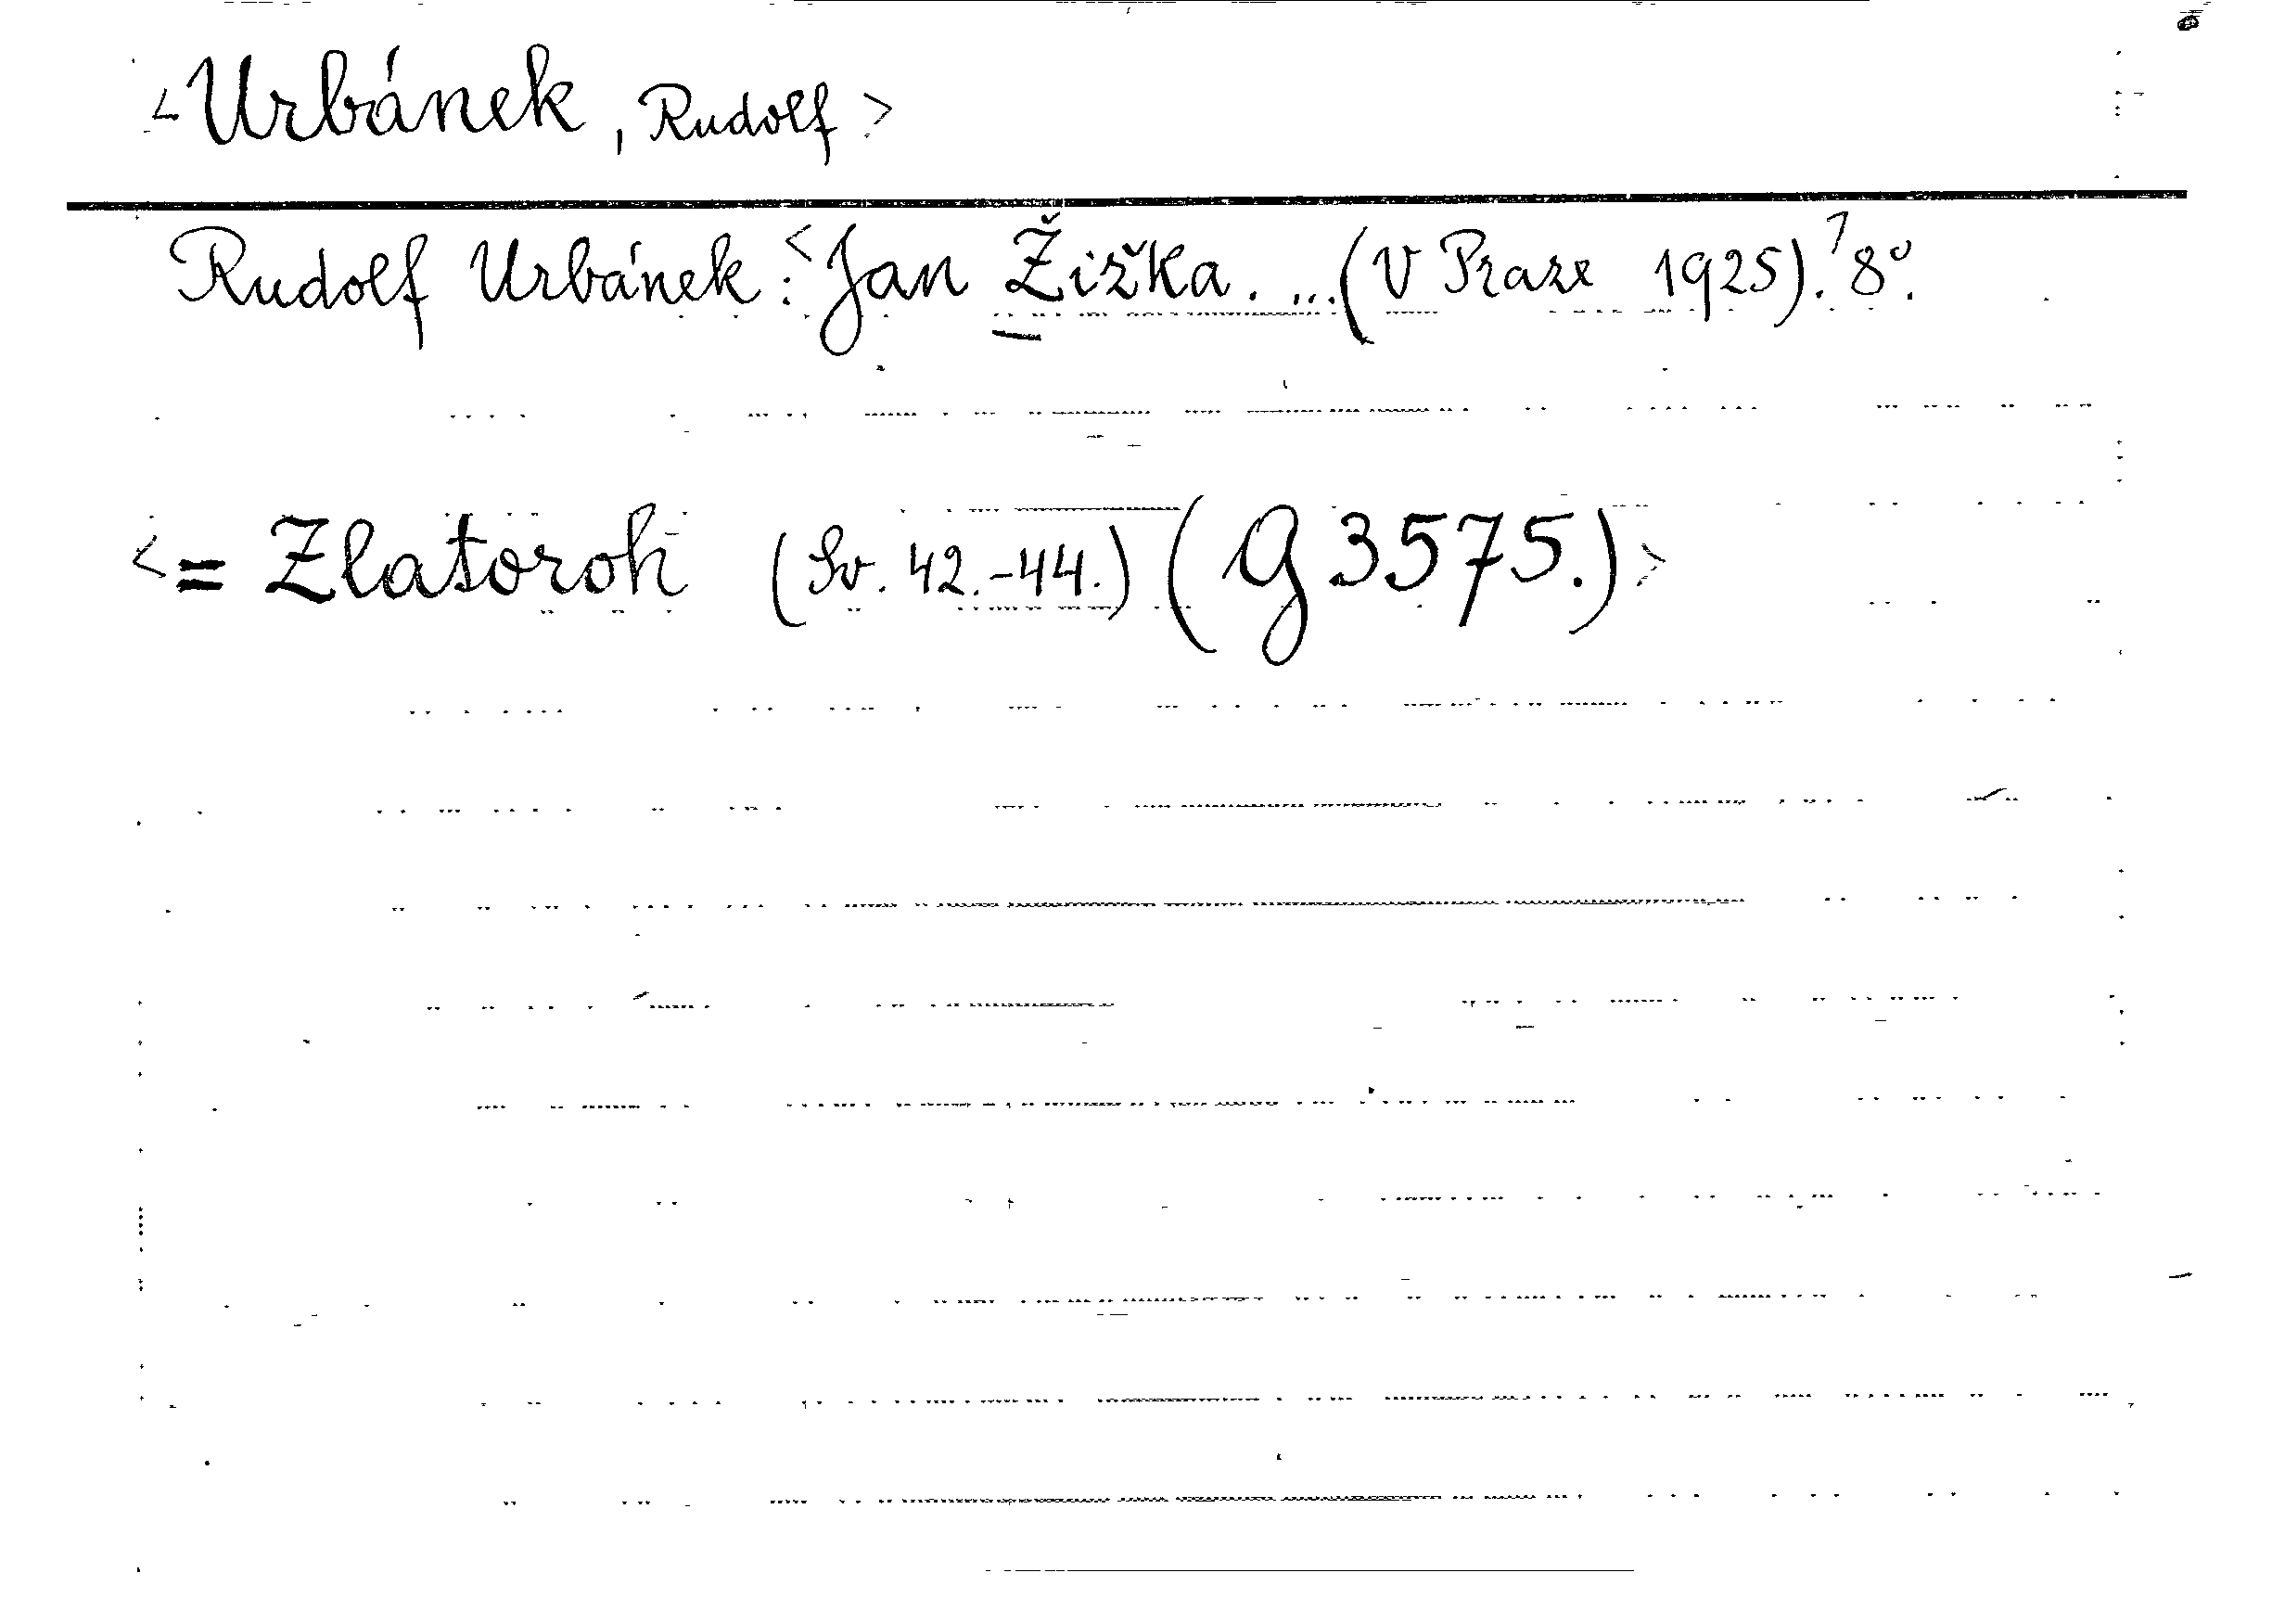 <Urbánek, Rudolf>
Rudolf Urbánek: <Jan Žižka. ...(V Praze 1925).> 8°.
<= Zlatoroh (Sv. 42.-44.) (G 3575.)>